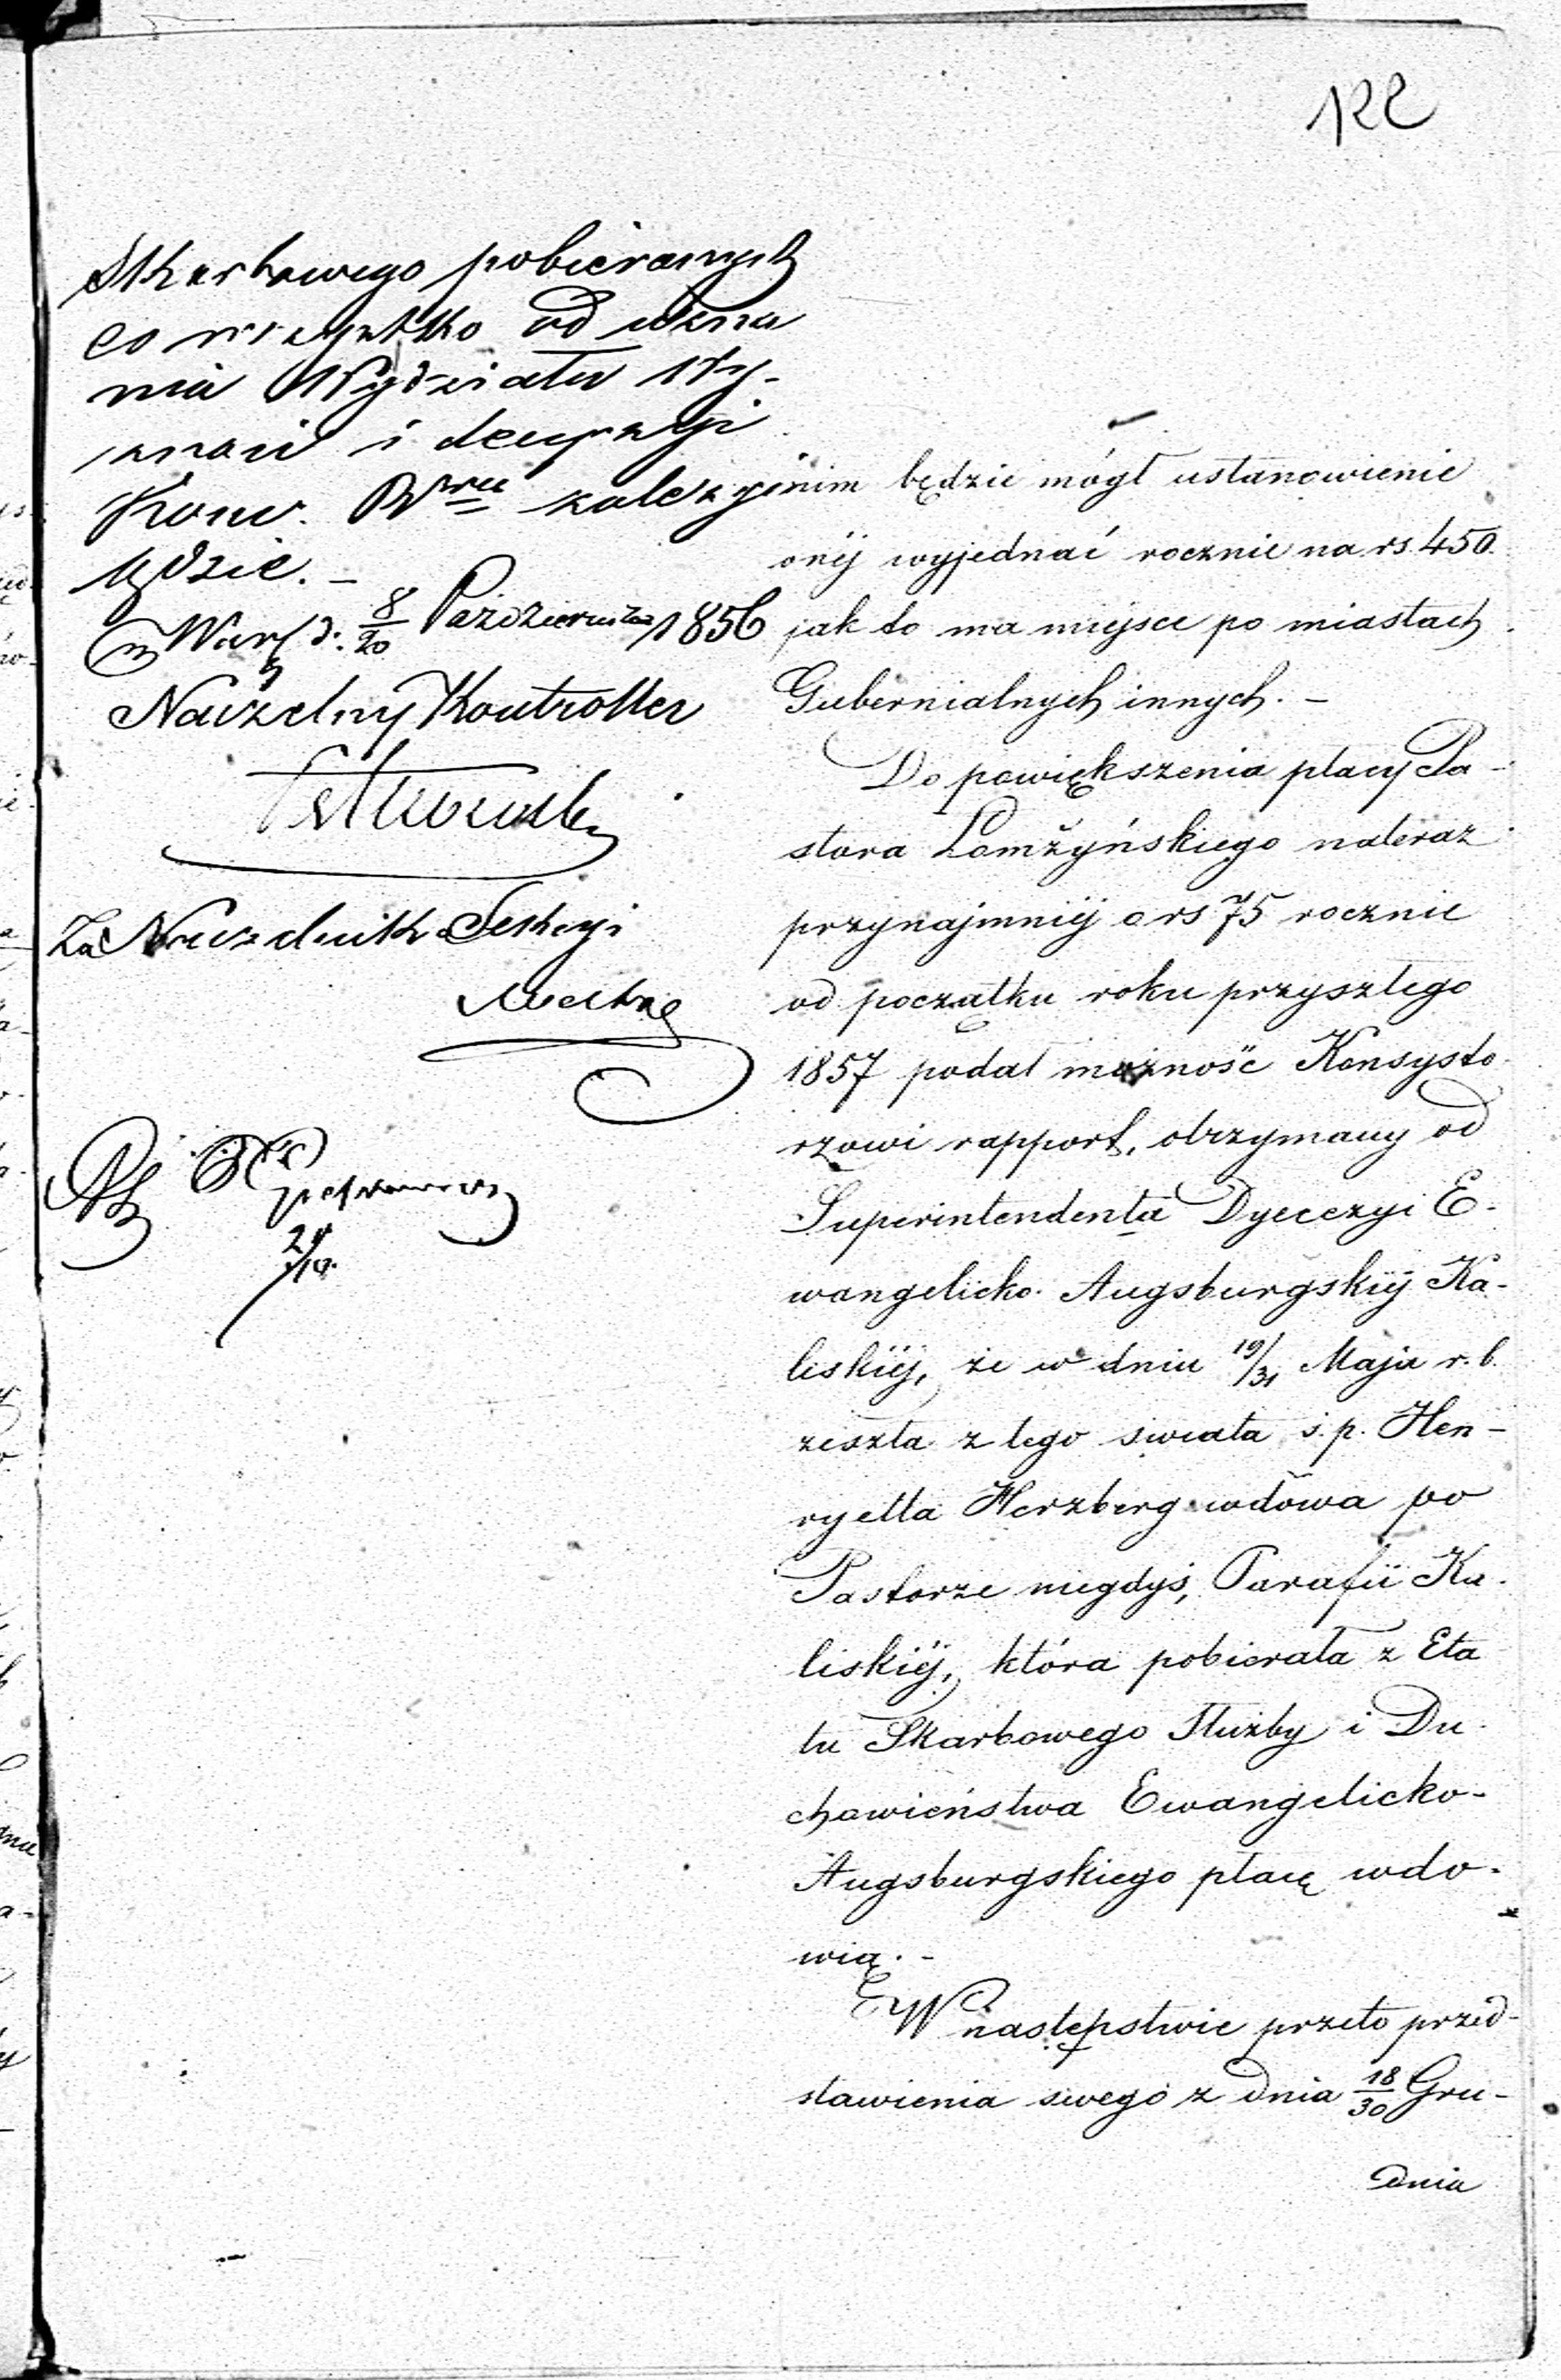 122
Skarbowego pobieranych
co wszystko od uzna
nia Wydziału Wy-
znań i decyzyi
Kom. Rz. należyć
będzie. –
w Warś d: 8/20 Października 1856
Naczelny Kontroller
Za Naczelnika Sekcyi
21/10.
nim będzie mógł ustanowienie
onéj wyjednać rocznie na rs. 450.
jak to ma miejsce po miastach
Gubernialnych innych. –
Do powiększenia płacy Pa-
stora Łomżyńskiego nateraz
przynajmniéj o rs 75 rocznie
od początku roku przyszłego
1857 podał możność Konsysto-
rzowi rapport, otrzymany od
Superintendenta Dyecezyi E-
wangelicko-Augsburgskiéj Ka-
liskiéj, że w dniu 19/31 Maja r. b.
zeszła z tego świata ś. p. Hen-
ryetta Herzberg wdowa po
Pastorze niegdyś, Parafii Ka-
liskiéj, która pobierała z Eta
tu Skarbowego Służby i Du-
chowieństwa Ewangelicko-
Augsburgskiego płacę wdo-
wią. –
W następstwie przeto przed-
stawienia swego z dnia 18/30 Gru-
dnia